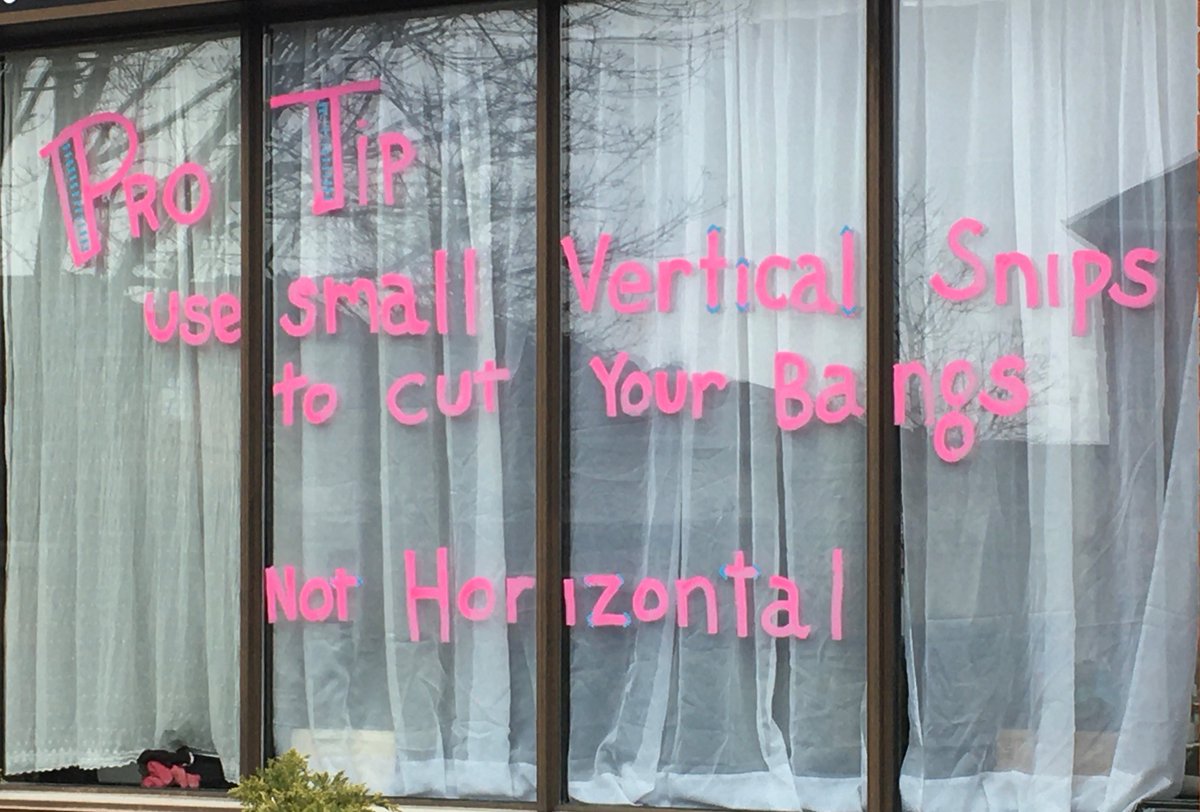 Pro Tip
use small Vertical Snips
to cut Your Bangs
Not Horizontal